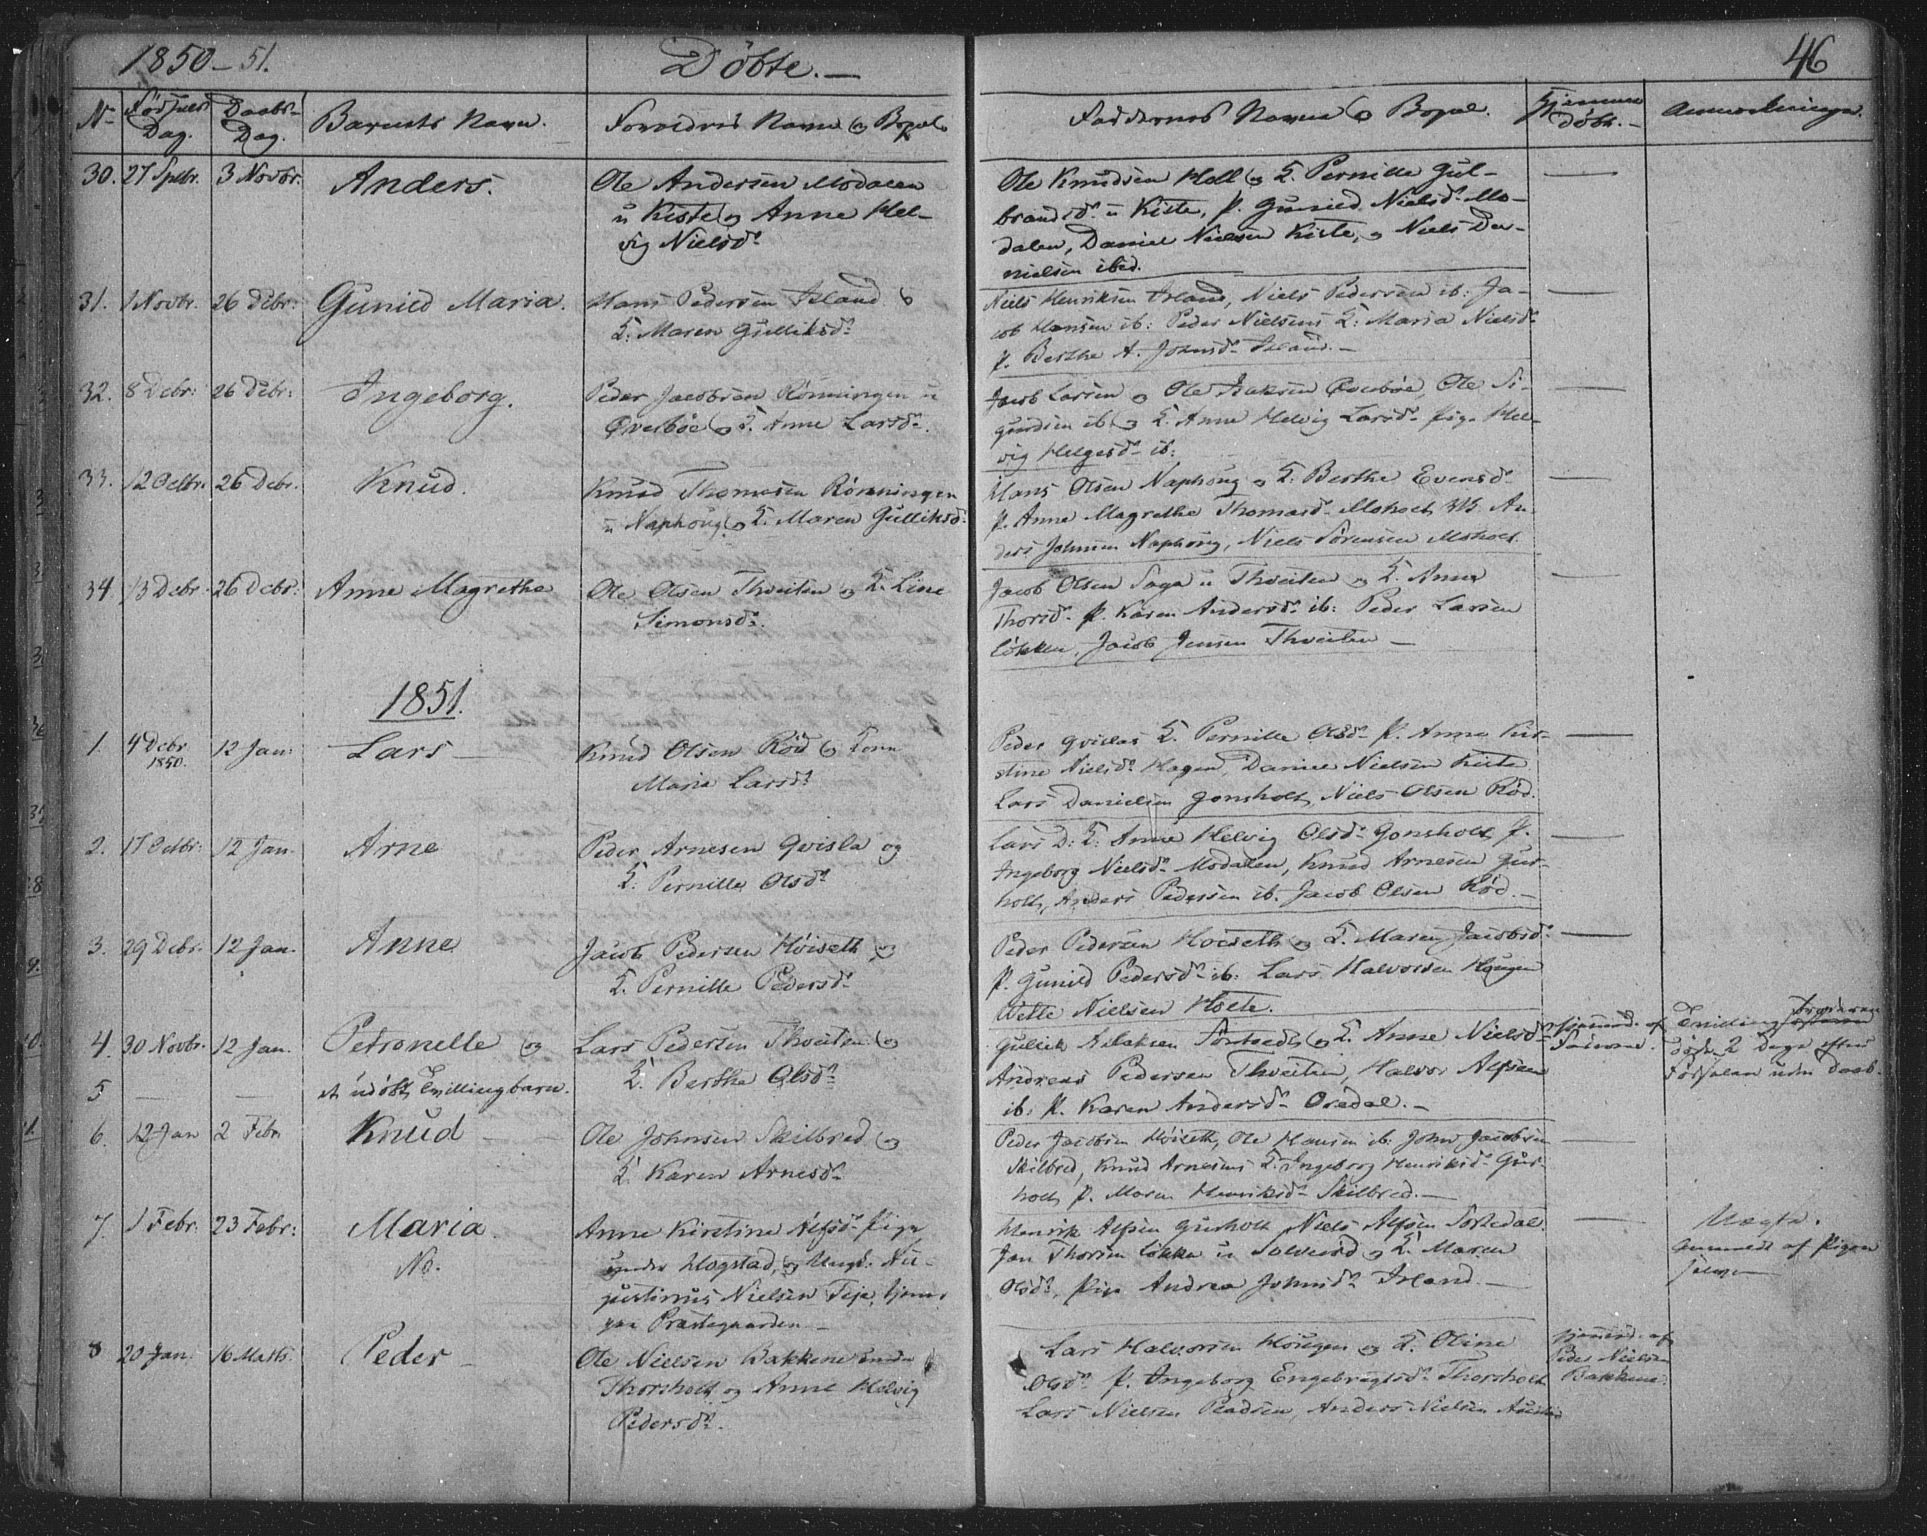 1850-51. Døbte.- 46
No Fødsels Dag. Daabs- Dag. Barnets Navn. Forældres Navn og Bopæl Faddernes Navne og Bopæl. Hjemme døbt.- Anmærkninger.
30. 27 Sptbr. 3 Novbr. Anders. Ole Andersen Modalen
u Kiste og Anne Hel-
vig Nielsdr
Ole Knudsen Holl og K. Pernille Gul-
brandsdr u Kiste, P. Gunild Nielsdr Mo-
dalen, Daniel Nielsen Kiste, og Niels Da-
nielsen ibid.
31. 1 Novbr. 26 Debr: Gunild Maria. Hans Pedersen Island &
K: Maren Gulliksdr
Niels Henriksen Island, Niels Pedersen ib: Ja-
cob Hansen ib: Peder Nielsens K: Maria Nielsdr
P. Berthe A. Johnsdr Island.-
32. 8 Debr: 26 Debr: Ingeborg. Peder Jacobsen Rønningen u
Qverbøe og K. Anne Larsdr.
Jacob Larsen og Ole Isaksen Qverbøe, Ole Si-
gurdsen ib og K. Anne Helvig Larsdr pige Hel-
vig Helgesdr ib:
33. 12 Octbr. 26 Debr. Knud. Knud Thomesen Rønningen
u Naphoug og K. Maren Gulliksdr
Hans Olsen Naphoug og K. Berthe Evensdr
P. Anne Magrethe Thomasdr Moholt An-
ders Johnsen Naphoug, Niels Sørensen Moholt
34. 13 Debr. 26 Debr: Anne Magrethe Ole Olsen Thveiten og K. Line
Simonsdr.
Jacob Olsen Saga u Thveiten og K. Anne
Thorsdr P. Karen Andersdr ib: Peder Larsen
Løkken, Jacob Jensen Thveiten -
1851.
1. 4 Debr 1850. 12 Jan: Lars - Knud Olsen Rød og Kone
Maria Larsdr
Peder Qvislas K. Pernille Olsdr P. Anne Kir-
stine Nielsdr Hagen, Daniel Nielsen Kiste
Lars Danielsen Gonsholt, Niels Olsen Rød.
2. 17 Octbr: 12 Jan. Arne Peder Arnesen Qvisla og
K. Pernille Olsdr
Lars D: K: Anne Helvig Olsdr Gonsholt P.
Ingeborg Nielsdr Modalen, Knud Arnesen Gus-
holt, Anders Pedersen ib. Jacob Olsen Rød.-
3. 29 Debr. 12 Jan. Anne Jacob Pedersen Høiseth og
K. Pernille Pedersdr
Peder Pedersen Hoiseth og K. Maren Jacobsdr
P. Gunild Pedersdr ib: Lars Halvorsen Hougen
Nielsen Holte.
4. 30 Novbr. 12 Jan. Petronelle og Lars Pedersen Thveiten og
5 - - et udøbt Tvillingbarn. K. Berthe Olsdr
Gulick Sortedal og K. Anne Nielsdr
Andreas Pedersen Thveiten, Halvor Alfsen
ib: P. Karen Andersdr Oredal.-
hjemmed. af
Faderne.
Tvilling
døde 2 Dage efter
Fødselen uden Daab.
6. 12 Jan 2 Febr Knud - Ole Johnsen Skilbred og
K. Karen Arnesdr
Peder Jacobsen Høiseth, Ole Hansen ib: John Jacobsen
Skilbred, Knud Arnesens K. Ingeborg Henriksdr Gus-
holt P. Maren Henriksdr Skilbred.-
7. 1 Febr: 23 Febr: Maria. Anne Kirstine Alfsdr Pige
No. under Hogstad, og Ungk. Au-
gustinus Nielsen Teje, tjener
paa Præstegaarden -
Henrik Alfsen Gusholt Niels Alfsen Sortedal
Jan Thorsen Løkken u Solverød og K. Maren
Olsdr, Pige Andrea Johnsdr Island.-
Uægte.
anmeldt af Pigen
selv -
8 20 Jan. 16 Marts. Peder - Ole Nielsen Bakkene under
Thorsholt og Anne Helvig
Pedersdr.
Lars Halvorsen Hougen og K. Oline
Olsdr P. Ingeborg Engebregtsdr Thorsholt
Lars Nielsen Anders Nielsen
hjemmed. af
Peder Nielsen
Bakkene.